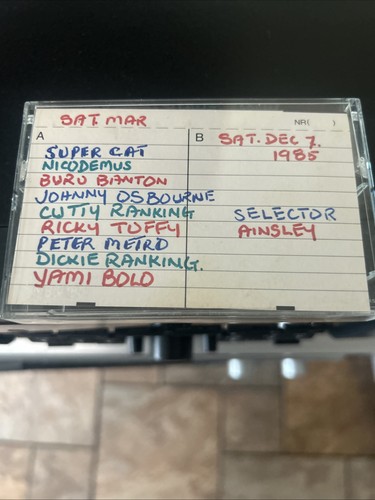 SAT. MAR
NR( )
A
SUPER CAT
NICODEMUS
BURU BANTON
JOHNNY OSBOURNE
CUTTY RANKING
RICKY TUFFY
PETER METRO
DICKIE RANKING.
YAMI BOLO
B
SAT. DEC 7.
1985
SELECTOR
AINSLEY